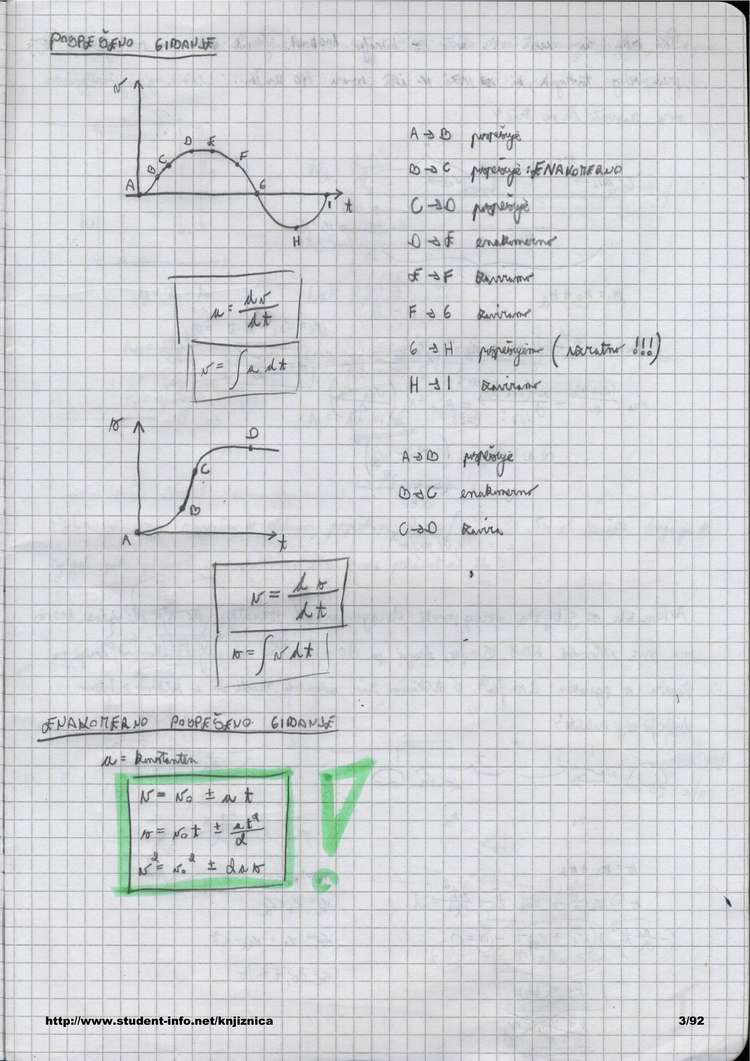 POSPEŠENO GIBANJE
v
A B C D E F G H I t
A → B pospešuje
B → C pospešuje : ENAKOMERNO
C → D pospešuje
D → E enakomerno
E → F zaviramo
F → G zaviramo
G → H pospešujemo (vzvratno !!!)
H → I zaviramo
a = dv/dt
v = ∫ a dt
s
A B C D t
A → B pospešuje
B → C enakomerno
C → D zavira
v = ds/dt
s = ∫ v dt
ENAKOMERNO POSPEŠENO GIBANJE
a = konstanten
v = v₀ ± a t
s = v₀ t ± at²/2
v² = v₀² ± 2as
!
http://www.student-info.net/knjiznica 3/92